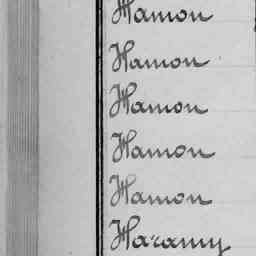 Hamon
Hamon
Hamon
Hamon
Hamon
Haramy